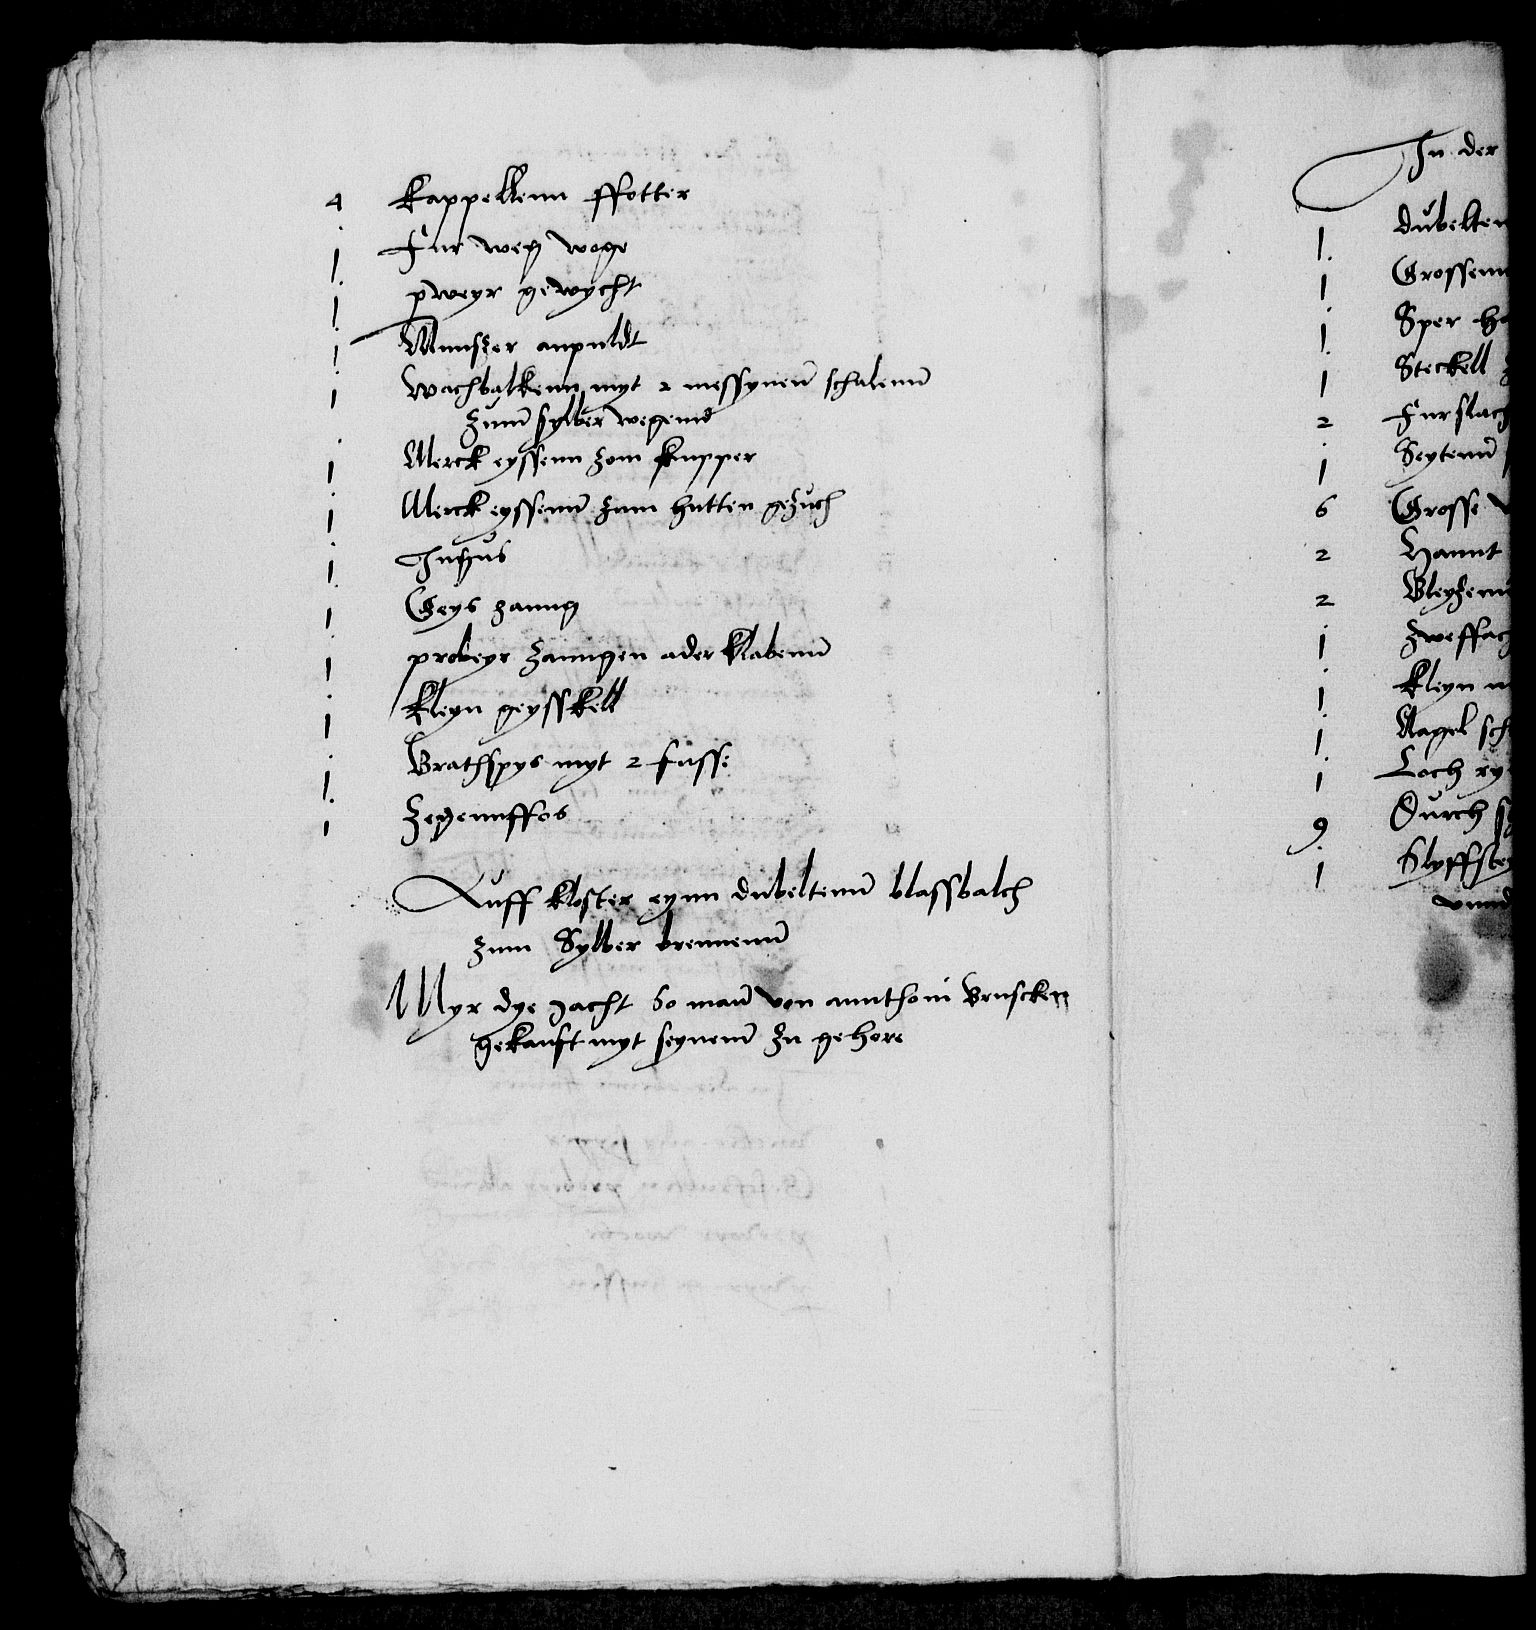 4 Kappellenn ffotter
1 Fur weg woge
1 pweyr gewycht
1 Munszer anpuldt
1 Wachbalkenn myt 2 messynen schalenn
zum sylber wegend
1 Merck eyssenn zom kupper
1 Merck eyssenn zum hutten gezuch
1 Ingus
1 Geys zanng
1 probeyr zanngen ader klabenn
1 kleyn geysskell
1 Brathspys myt 2 fusse
1 Zegennffos
Auff kloster eynn dubeltenn blassbalch
zum Sylber brennenn
Myr dye Jacht So man von annthoni Bruscken
gekauft myt seynem zu gehore
In der
1 dubelten
1 Grossenn
1 Sper
1 Steckell
2 Furslach
1 Seytenn
6 Grosse
2 Hannt
2
1 Zweffach
1 Kleyn
1 Nagel sch
1 Loch ey
9 Durch
1 Slyffstey
vnnd